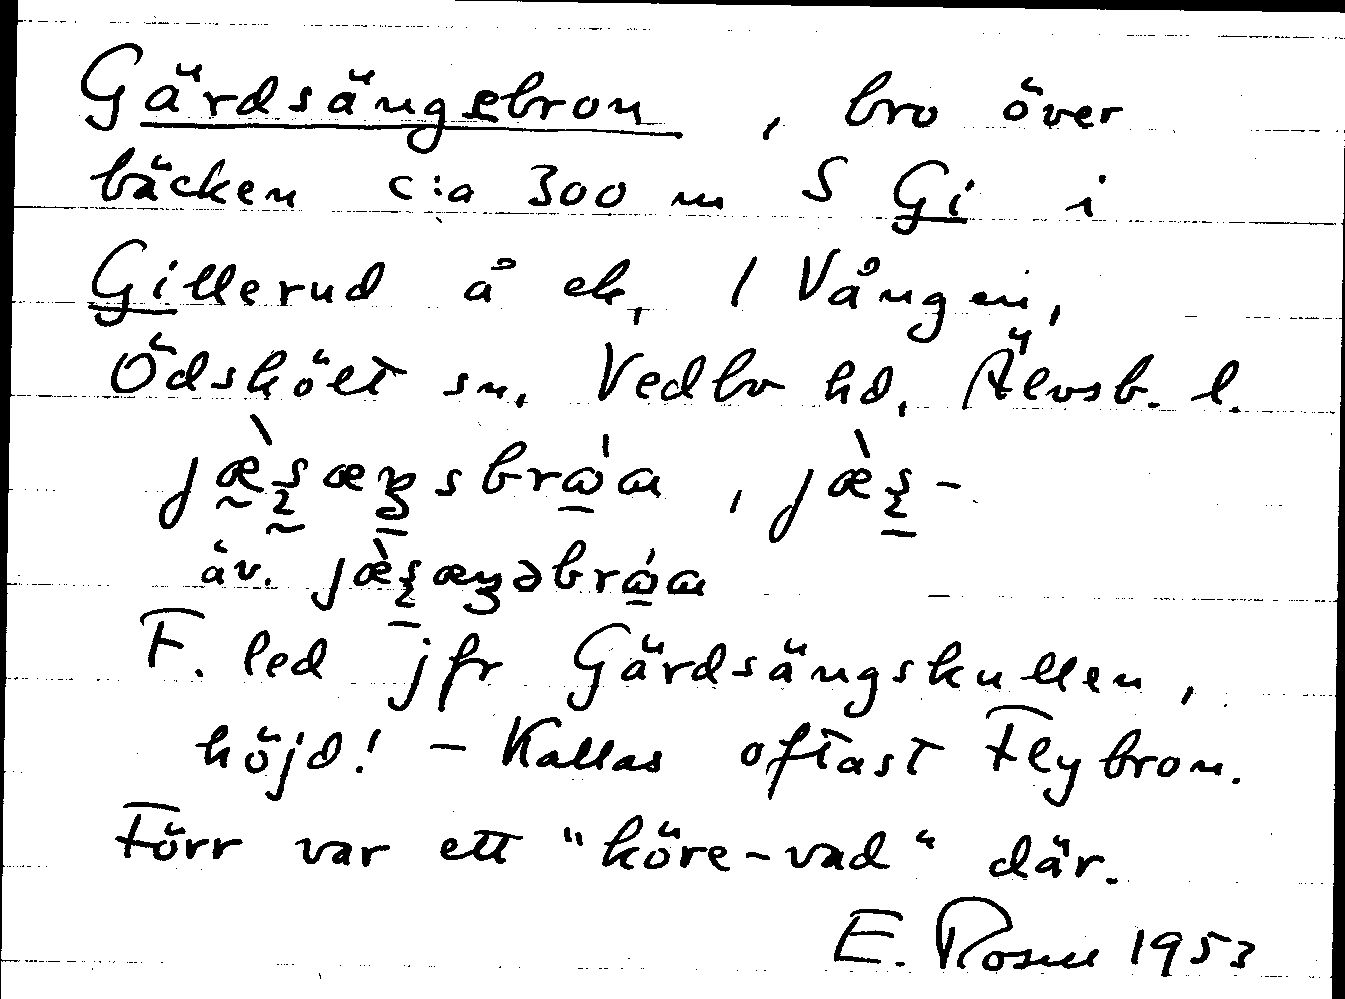 Gärdsängebron, bro över
bäcken c:a 300 m S Gi i
Gillerud å ek. 1 Vången,
Ödskölt sn, Vedbo hd, Älvsb. l.
äv.
F. led jfr Gärdsängskullen,
höjd! – Kallas oftast Flybron.
Förr var ett "köre-vad" där.
E. Rosell 1953